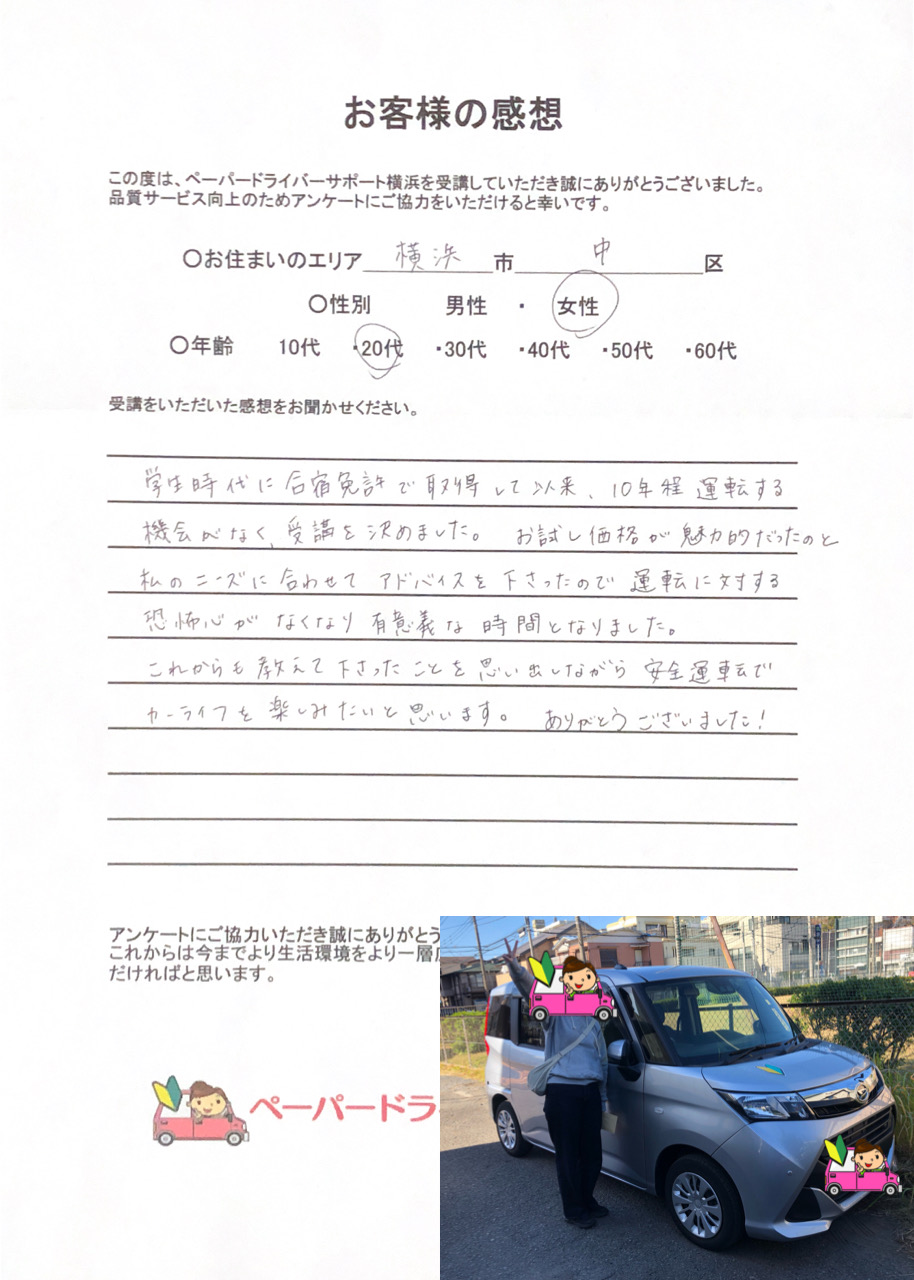 お客様の感想
この度は、ペーパードライバーサポート横浜を受講していただき誠にありがとうございました。
品質サービス向上のためアンケートにご協力をいただけると幸いです。
〇お住まいのエリア 横浜 市 中 区
〇性別 男性 ・ 女性
〇年齢 10代 ・20代 ・30代 ・40代 ・50代 ・60代
受講をいただいた感想をお聞かせください。
学生時代に合宿免許で取得して以来、10年程運転する
機会がなく、受講を決めました。 お試し価格が魅力的だったのと
私のニーズに合わせてアドバイスを下さったので運転に対する
恐怖心がなくなり有意義な時間となりました。
これからも教えて下さったことを思い出しながら安全運転で
カーライフを楽しみたいと思います。 ありがとうございました!
アンケートにご協力いただき誠にありがとう
これからは今までより生活環境をより一層
だければと思います。
ペーパードラ